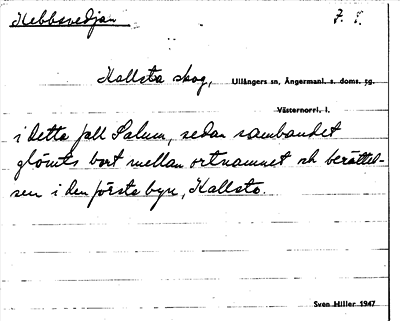 Kebbsvedjan 7. 5.
Kallsta skog, Ullångers sn, Ångermanl. s. doms. sg.
Västernorrl. l.
i detta fall Salum, sedan sambandet
glömts bort mellan ortnamnet och berättel-
sen i den första byn, Kallsta.
Sven Hiller 1947